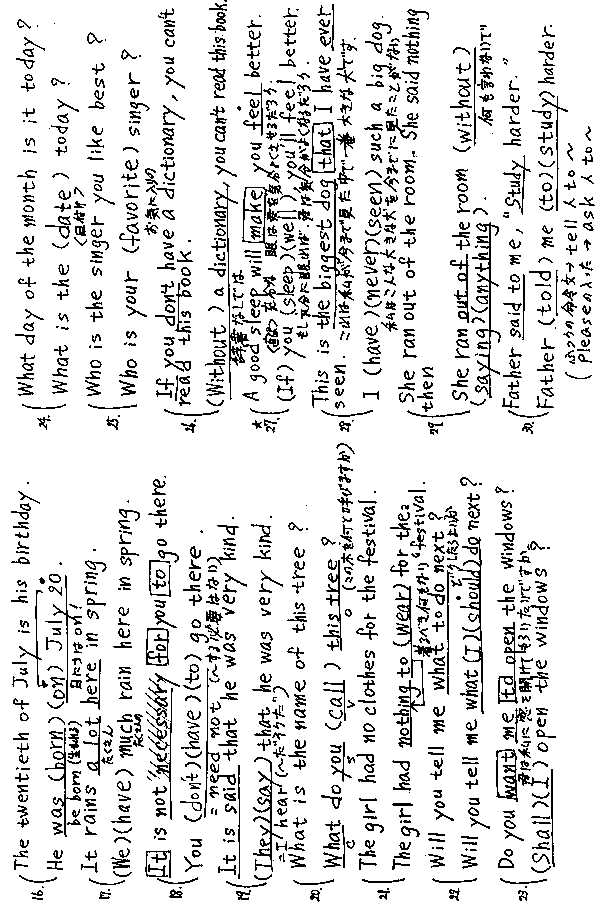 16. The twentieth of July is his birthday.
He was (born) (on) July 20.
be born (生まれる) 日にちはon!
17. It rains a lot here in spring.
たくさん
(We) (have) much rain here in spring.
たくさん
18. It is not necessary for you to go there.
You (don't) (have) (to) go there.
= need not (〜する必要はない)
19. It is said that he was very kind.
(They) (say) that he was very kind.
= I hear (〜だそうだ)
20. What is the name of this tree?
What do you (call) this tree?
C S V O (この木を何て呼びますか)
21. The girl had no clothes for the festival.
The girl had nothing to (wear) for the festival.
着るべき何も〜ない
22. Will you tell me what to do next?
どうしたらよいか
Will you tell me what (I) (should) do next?
23. Do you want me to open the windows?
君は私に窓を開けてもらいたいですか
(Shall) (I) open the windows?
24. What day of the month is it today?
What is the (date) today?
(日付け)
25. Who is the singer you like best?
Who is your (favorite) singer?
お気に入りの
26. If you don't have a dictionary, you can't read this book.
(Without) a dictionary, you can't read this book.
辞書なしでは
★
27. A good sleep will make you feel better.
眠は君を気分よくさせるだろう
(If) you (sleep) (well), you'll feel better.
28. This is the biggest dog that I have ever seen.
これは私が今まで見た中で一番大きな犬です。
I (have) (never) (seen) such a big dog.
私はこんな大きな犬を今までに見たことがない
29. She ran out of the room. She said nothing then
She ran out of the room (without) (saying) (anything).
何も言わないで
30. Father said to me, "Study harder."
Father (told) me (to) (study) harder.
(ふつうの命令文→tell 人 to〜
Pleaseの入った→ask 人 to〜